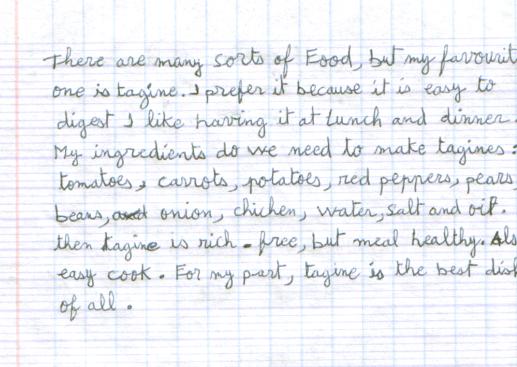 There are many sorts of Food, but my favourit
one is tagine. I prefer it because it is easy to
digest I like having it at lunch and dinner.
My ingredients do we need to make tagines:
tomatoes, carrots, potatoes, red peppers, pears
beans, and onion, chichen, water, salt and oil.
then tagine is rich - free, but meal healthy. Als
easy cook. For my part, tagine is the best dish
of all.